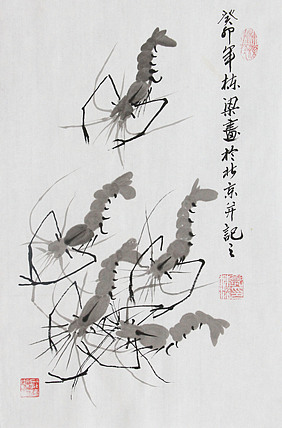 癸卯年栋梁畫於北京并記之